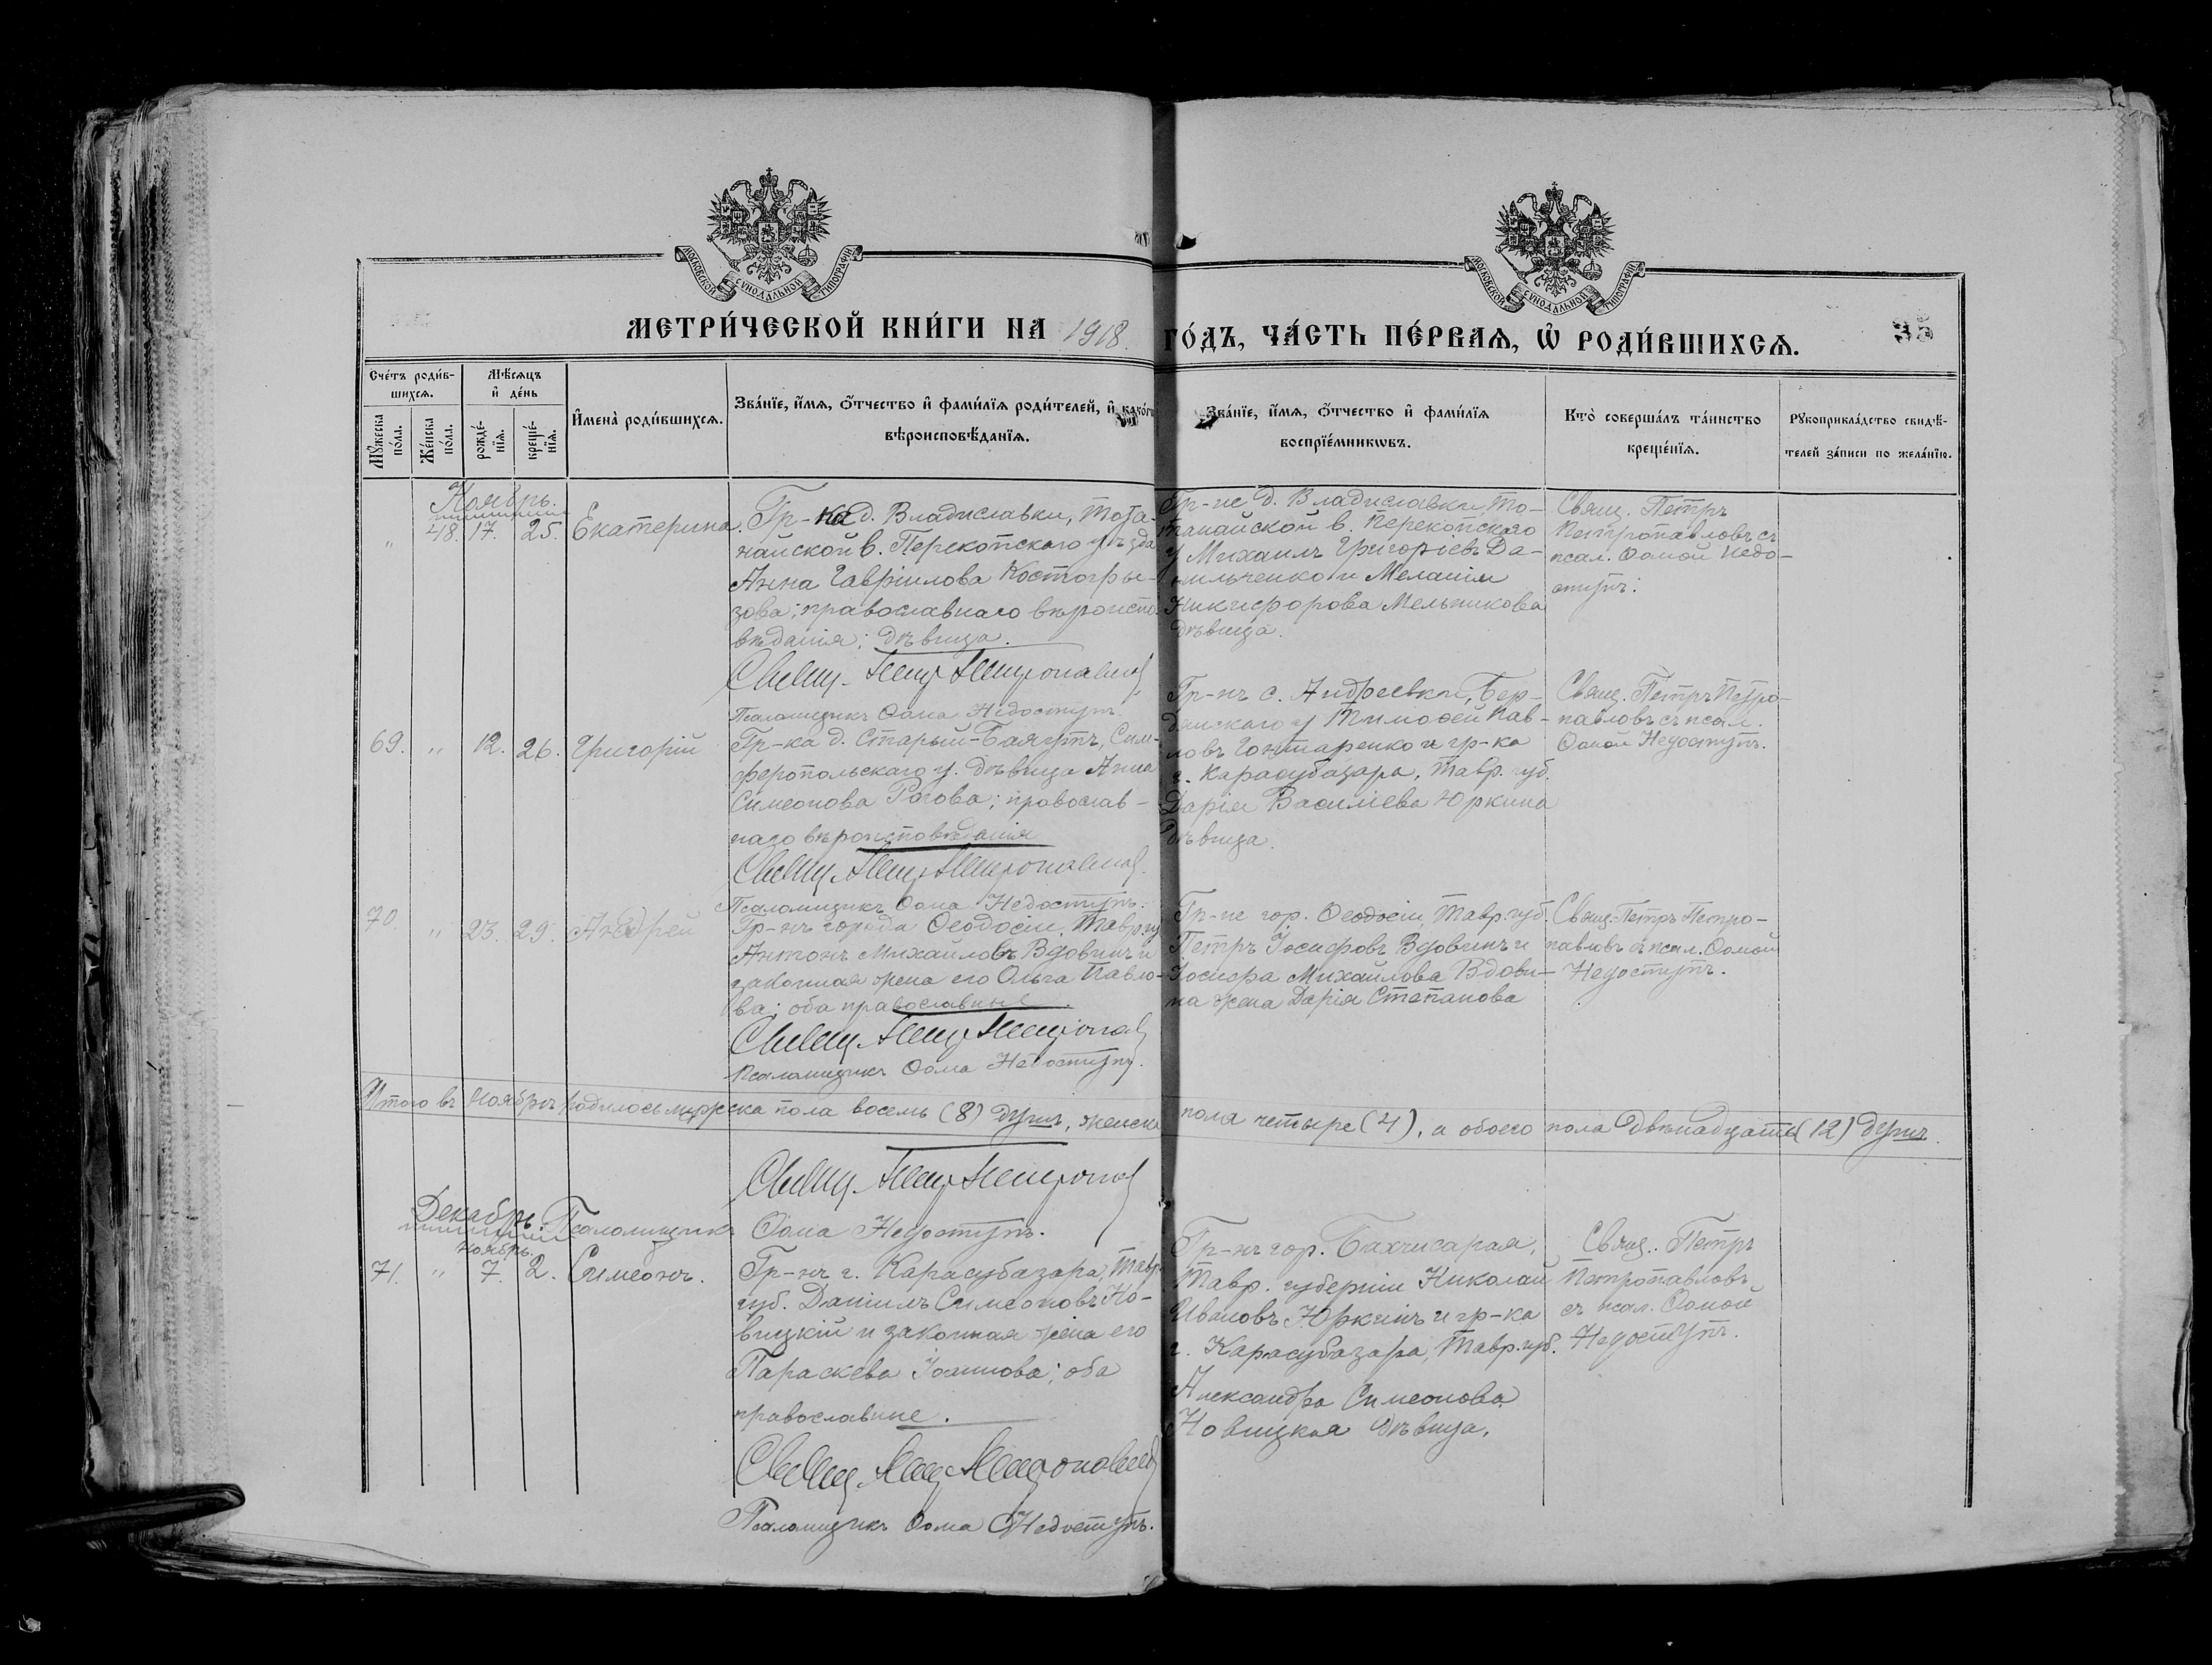 МОСКОВСКОЙ СѴНОДАЛЬНОЙ ТИПОГРАФІИ
МОСКОВСКОЙ СѴНОДАЛЬНОЙ ТИПОГРАФІИ
МЕТРИ́ЧЕСКОЙ КНИ́ГИ НА 1918. ГО́ДЪ, ЧА́СТЬ ПЕ́РВАЯ, Ѽ РОДИ́ВШИХСЯ.
35
Сче́тъ роди́в-
шихся.
Мѣ́сяцъ
и҆ де́нь
Мꙋ́жеска по́ла.
Же́нска по́ла.
рожде́-
нїя.
креще́-
нїя.
И҆мена̀ роди́вшихся.
Зва́нїе, и҆́мя, ѻ҆́тчество и҆ фами́лїя роди́телей, и҆ како́гѡ
вѣроисповѣ́данїя.
Зва́нїе, и҆́мя, ѻ҆́тчество и҆ фами́лїя
воспрїе́мникѡвъ.
Кто̀ соверша́лъ та́инство
креще́нїя.
Рꙋкоприкла́дство свидѣ́-
телей за́писи по жела́нїю.
Ноябрь.
" 48. 17. 25. Екатерина.
Гр-ка д. Владиславки, Тота-
найской в. Перекопскаго уѣзда
Анна Гавріилова Костогры-
зова; православнаго вѣроиспо
вѣданія; дѣвица.
Свящ. Петр Петропавлов
Псаломщикъ Ѳома Недоступъ.
Гр-не д. Владиславки, То-
танайской в. Перекопскаго
у Михаилъ Григоріевъ Да-
нильченко и Меланія
Никифорова Мельникова
дѣвица.
Свящ. Петръ
Петропавловъ съ
псал. Ѳомой Недо-
ступъ.
69. " 12. 26. Григорій
Гр-ка д. Старый-Баягутъ, Сим-
феропольскаго у. дѣвица Анна
Симеонова Рогова; православ-
наго вѣроисповѣданія
Свящ. Петр Петропавлов
Псаломщикъ Ѳома Недоступъ.
Гр-нъ с. Андреевки, Бер-
дянскаго у Тимоѳей Пав-
ловъ Гончаренко и гр-ка
г. Карасубазара, Тавр. губ.
Дарія Василіева Юркина
дѣвица.
Свящ. Петръ Петро-
павловъ съ псал.
Ѳомой Недоступъ.
70. " 23. 29. Андрей
Гр-нъ города Ѳеодосіи, Тавр.гу
Антонъ Михайловъ Вдовинъ и
законная жена его Ольга Павло-
ва; оба православные.
Свящ. Петр Петропав
Псаломщикъ Ѳома Недоступъ.
Гр-не гор. Ѳеодосіи Тавр.губ.
Петръ Іосифовъ Вдовинъ и
Іосифа Михайлова Вдови-
на жена Дарія Степанова
Свящ. Петръ Петро-
павловъ съ псал. Ѳомой
Недоступъ.
Итого въ Ноябрѣ родилось мужеска пола восемь (8) душъ, женска пола четыре (4), а обоего пола двѣнадцать (12) душъ.
Свящ. Петр Петропав
Декабрь. Псаломщикъ Ѳома Недоступъ.
Ноябрь.
71. " 7. 2. Симеонъ.
Гр-нъ г. Карасубазара, Тавр.
губ. Даніилъ Симеоновъ Но-
вицкій и законная жена его
Параскева Іоаннова; оба
православные.
Свящ. Петр Петропавлов
Псаломщикъ Ѳома Недоступъ.
Гр-нъ гор. Бахчисарая,
Тавр. губерніи Николай
Ивановъ Юркинъ и гр-ка
г. Карасубазара, Тавр.губ.
Александра Симеонова
Новицкая дѣвица.
Свящ. Петръ
Петропавловъ
съ псал. Ѳомой
Недоступъ.